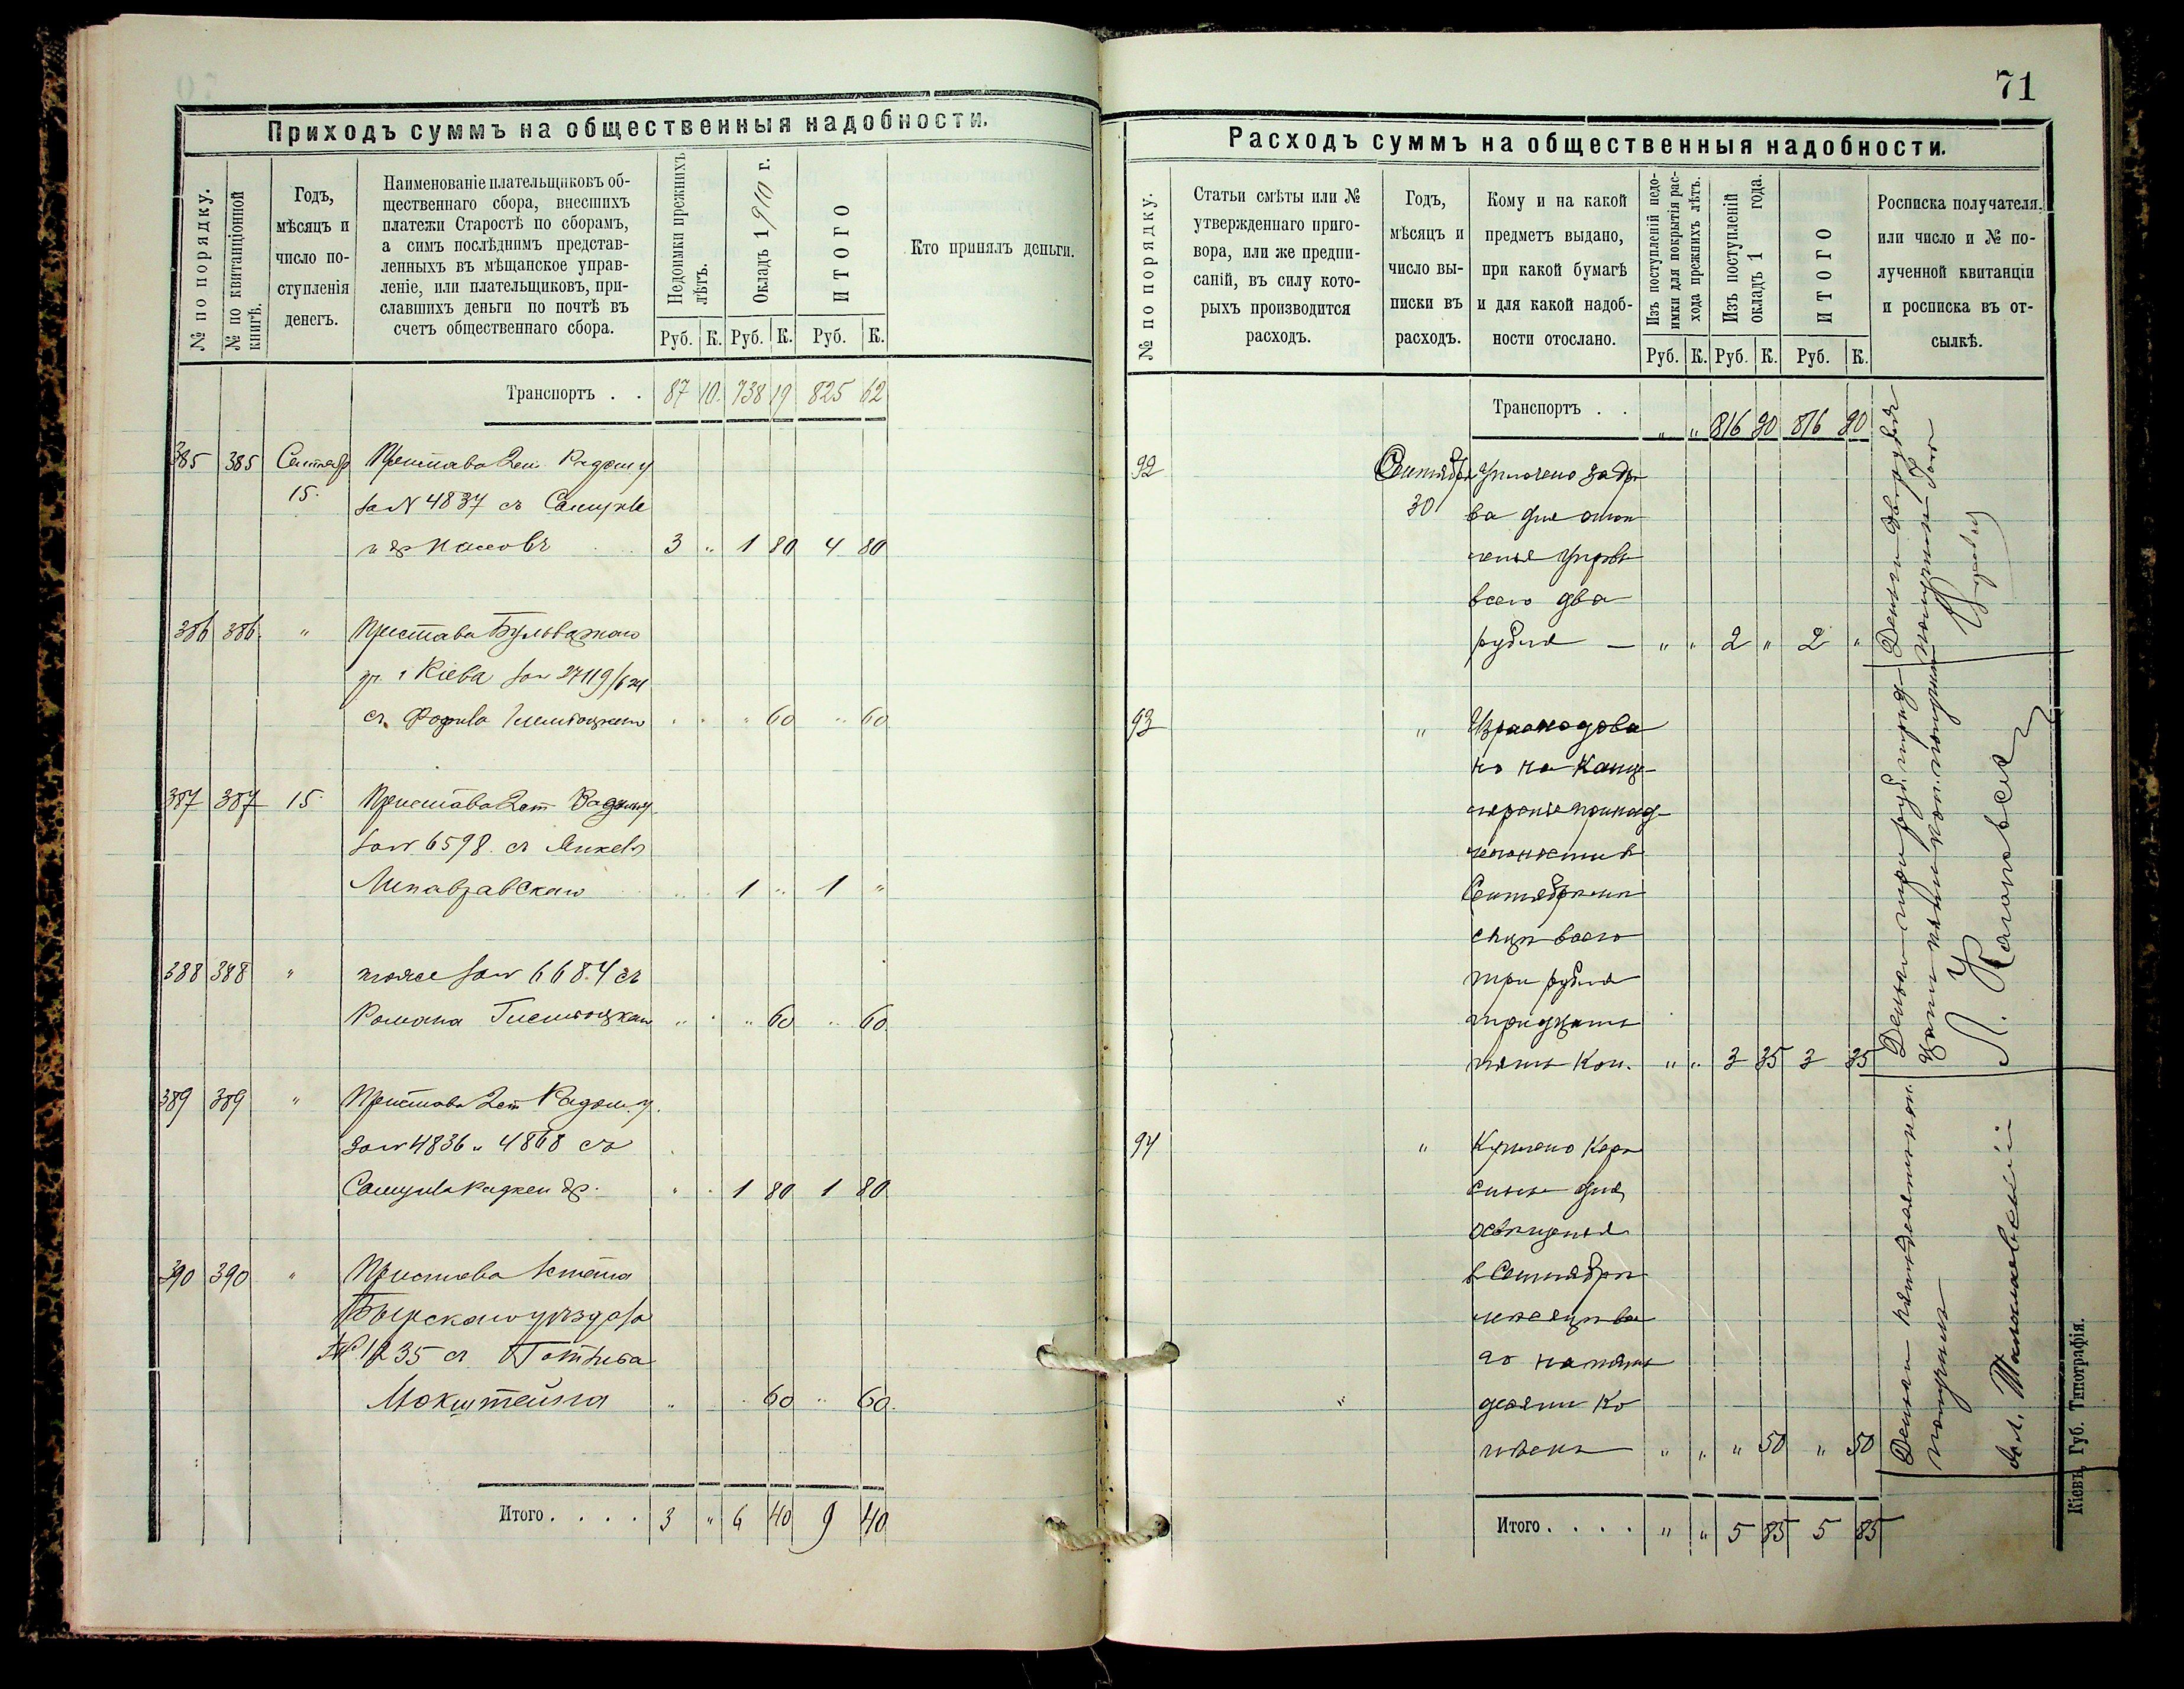 Приходъ суммъ на общественныя надобности.
№ по порядку.
№ по квитанціонной книгѣ.
Годъ,
мѣсяцъ и
число по-
ступленія
денегъ.
Наименованіе плательщиковъ об-
щественнаго сбора, внесшихъ
платежи Старостѣ по сборамъ,
а симъ послѣднимъ представ-
ленныхъ въ мѣщанское управ-
леніе, или плательщиковъ, при-
славшихъ деньги по почтѣ въ
счетъ общественнаго сбора.
Недоимки прежнихъ лѣтъ.
Окладъ 1910 г.
ИТОГО
Кто принялъ деньги.
Руб. К. Руб. К. Руб. К.
Транспортъ . . 87 10. 738 19 825 62
385 385 Сентяб Пристава 2 ст. Радом. у.
15. за N 4837 съ
и др 3 " 1 80 4 80
386 386. " Пристава Бульварнаго
уч. г. Кіева за N 27119/
съ " 60 " 60
387 387 15. Пристава 2 ст Радом у
за N 6598 съ Янкеля
1 " 1 "
388 388 " тоже за N 6684 съ
Романа " " " 60 " 60
389 389 " Пристава 2 ст Радом. у.
за N 4836 и 4868 съ
др. " 1 80 1 80
390 390 " Пристава 1 стана
уѣзда за
№ 1235 съ Готлиба
Мокштейна " " 60 " 60
Итого . . . . 3 " 6 40 9 40
71
Расходъ суммъ на общественныя надобности.
№ по порядку.
Статьи смѣты или №
утвержденнаго приго-
вора, или же предпи-
саній, въ силу кото-
рыхъ производится
расходъ.
Годъ,
мѣсяцъ и
число вы-
писки въ
расходъ.
Кому и на какой
предметъ выдано,
при какой бумагѣ
и для какой надоб-
ности отослано.
Изъ поступленій недо-
имки для покрытія рас-
хода прежнихъ лѣтъ.
Изъ поступленій
окладъ 1 года.
ИТОГО
Росписка получателя.
или число и № по-
лученной квитанціи
и росписка въ от-
сылкѣ.
Руб. К. Руб. К. Руб. К.
Транспортъ . . " " 816 90 816 90
92 Сентября Уплочено за др
30 ва для отоп
ленія Управы
всего два
рубля — " " 2 " 2 "
Деньги два рубля
получилъ
93 " Израсходова
но на Канце-
лярскія принад-
лежности въ
Сентябрѣ мѣ
сяцѣ всего
три рубля
тридцать
пять коп. " " 3 35 3 35
Деньги три руб. трид-
цать пять коп. получилъ
94 " Куплено Керо
сину для
освѣщенія
въ Сентябрѣ
мѣсяцѣ все
го на пять
десятъ Ко
пѣекъ " " " 50 " 50
Деньги пятьдесятъ коп.
получилъ
Итого . . . . " " 5 85 5 85
Кіевъ, Губ. Типографія.